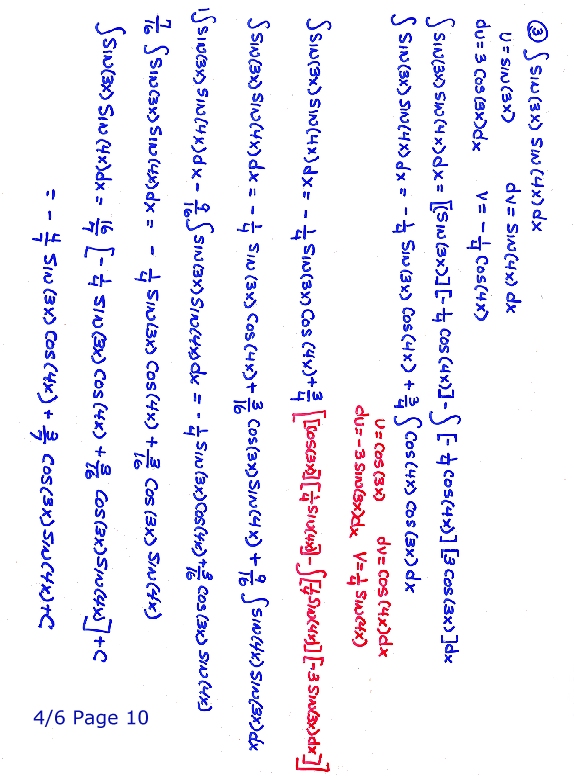 ③ ∫ SIN(3x) SIN(4x)dx
U = SIN(3x) dv = SIN(4x)dx
du = 3 Cos(3x)dx V = -1/4 Cos(4x)
∫ SIN(3x) SIN(4x)dx = [(SIN(3x)][-1/4 Cos(4x)] - ∫[-1/4 Cos(4x)][3 Cos(3x)]dx
∫ SIN(3x) SIN(4x)dx = -1/4 SIN(3x) Cos(4x) + 3/4 ∫ Cos(4x) Cos(3x)dx
U = Cos(3x) dv = Cos(4x)dx
du = -3 SIN(3x)dx V = 1/4 SIN(4x)
∫ SIN(3x) SIN(4x)dx = -1/4 SIN(3x) Cos(4x) + 3/4 [[Cos(3x)][1/4 SIN(4x)] - ∫[1/4 SIN(4x)][-3 SIN(3x)dx]]
∫ SIN(3x) SIN(4x)dx = -1/4 SIN(3x) Cos(4x) + 3/16 Cos(3x) SIN(4x) + 9/16 ∫ SIN(4x) SIN(3x)dx
1∫ SIN(3x) SIN(4x)dx - 9/16 ∫ SIN(3x) SIN(4x)dx = -1/4 SIN(3x) Cos(4x) + 3/16 Cos(3x) SIN(4x)
7/16 ∫ SIN(3x) SIN(4x)dx = -1/4 SIN(3x) Cos(4x) + 3/16 Cos(3x) SIN(4x)
∫ SIN(3x) SIN(4x)dx = 16/7 [-1/4 SIN(3x) Cos(4x) + 3/16 Cos(3x) SIN(4x)] + C
= -4/7 SIN(3x) Cos(4x) + 3/7 Cos(3x) SIN(4x) + C
4/6 Page 10